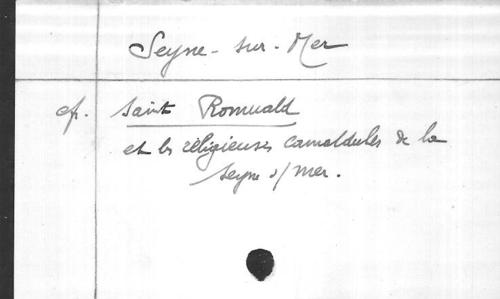 Seyne-sur-Mer
cf. Saint Romuald
et les religieuses camaldules de la
Seyne s/ mer.